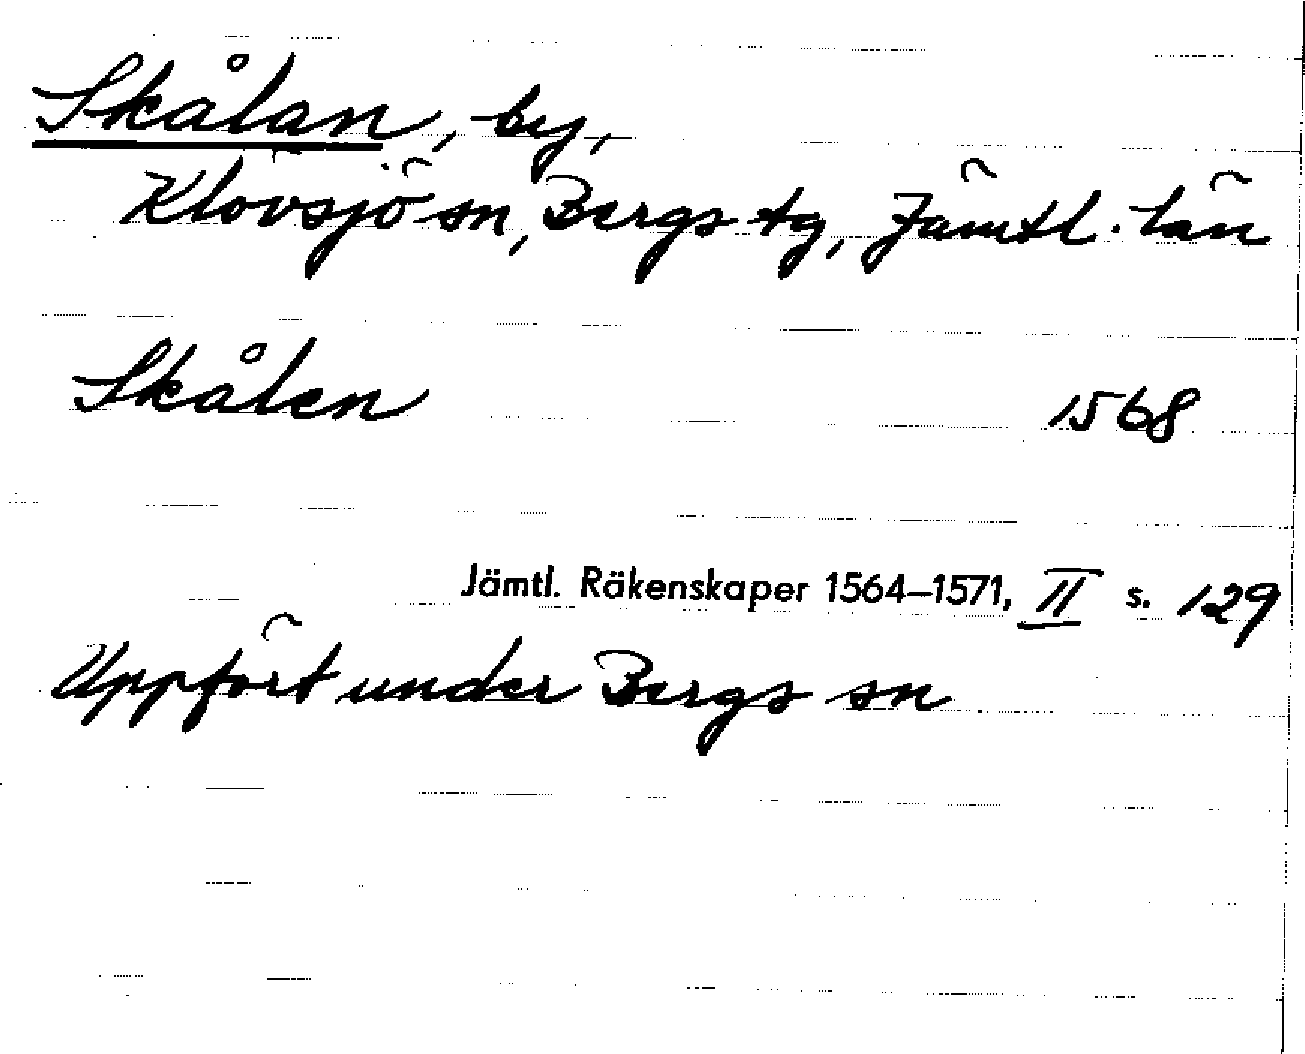 Skålan, by,
Klövsjö sn, Bergs tg, Jämtl. län
Skålen 1568
Jämtl. Räkenskaper 1564–1571, II s. 129
Uppfört under Bergs sn